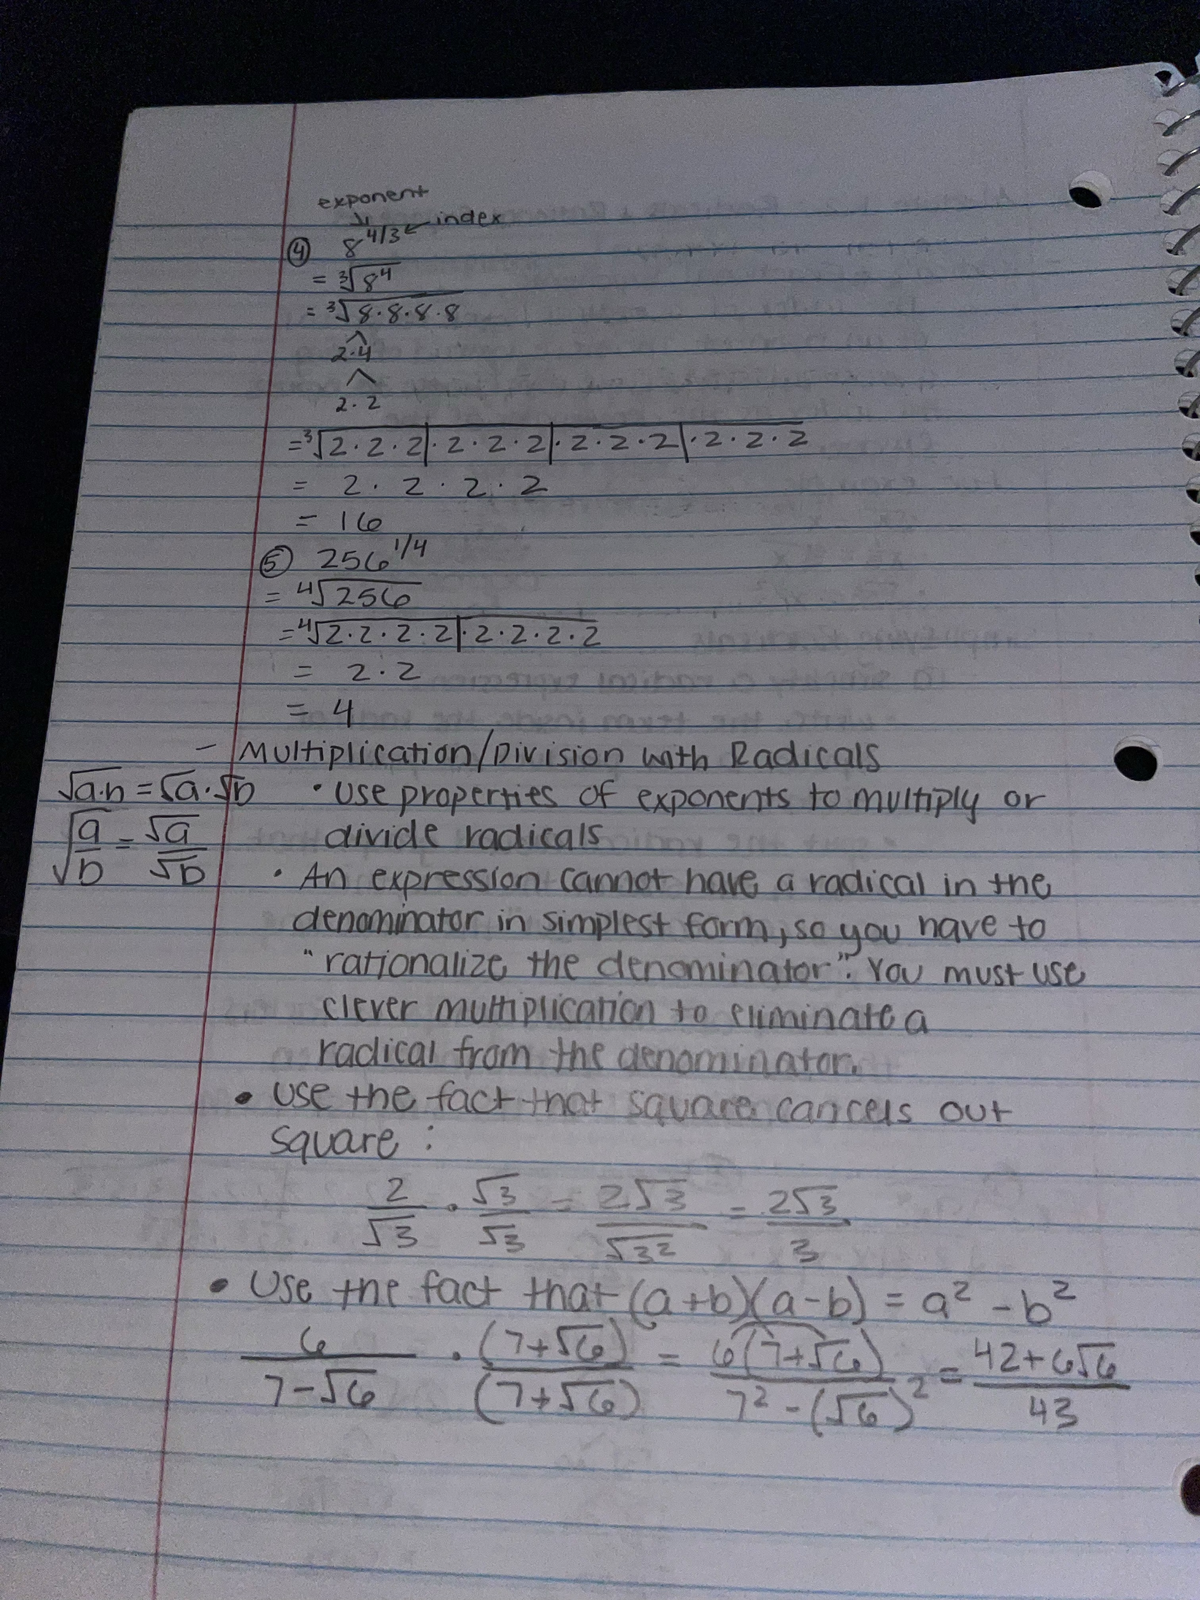 exponent
index
④ 8^4/3
= ³√8⁴
= ³√8·8·8·8
2·4
2·2
= ³√2·2·2|·2·2·2|·2·2·2|·2·2·2
= 2·2·2·2
= 16
⑤ 256^1/4
= ⁴√256
= ⁴√2·2·2·2|·2·2·2·2
= 2·2
= 4
- Multiplication/Division with Radicals
√a·n = √a·√b • Use properties of exponents to multiply or
√a/b = √a/√b divide radicals
• An expression cannot have a radical in the
denominator in simplest form, so you have to
"rationalize the denominator". You must use
clever multiplication to eliminate a
radical from the denominator.
• Use the fact that square cancels out
square:
2/√3 · √3/√3 = 2√3/√3² = 2√3/3
• Use the fact that (a+b)(a-b) = a² - b²
6/7-√6 · (7+√6)/(7+√6) = 6(7+√6)/7²-(√6)² = 42+6√6/43